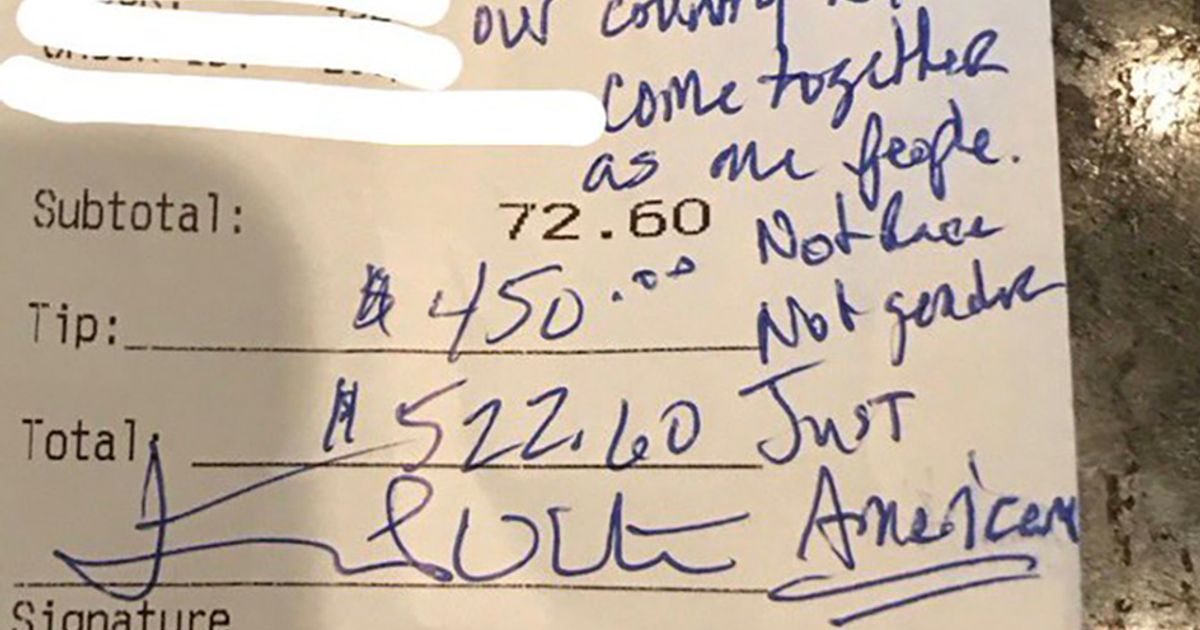 our country
come together
as one people.
Subtotal: 72.60 Not Race
Tip: $ 450.00 Not gender
Total: $ 522.60 Just
American
Signature